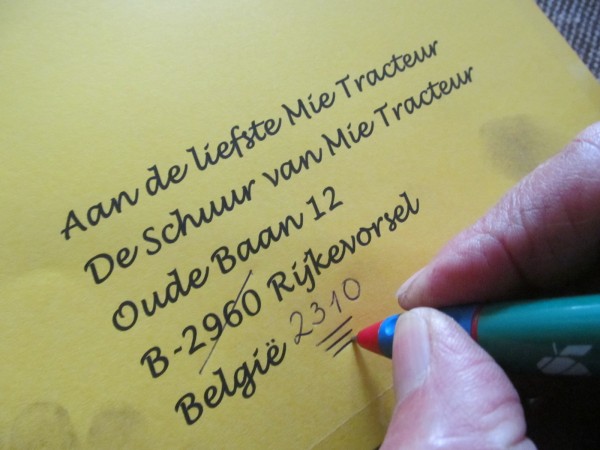 Aan de liefste Mie Tracteur
De Schuur van Mie Tracteur
Oude Baan 12
B-2960 Rijkevorsel
België 2310